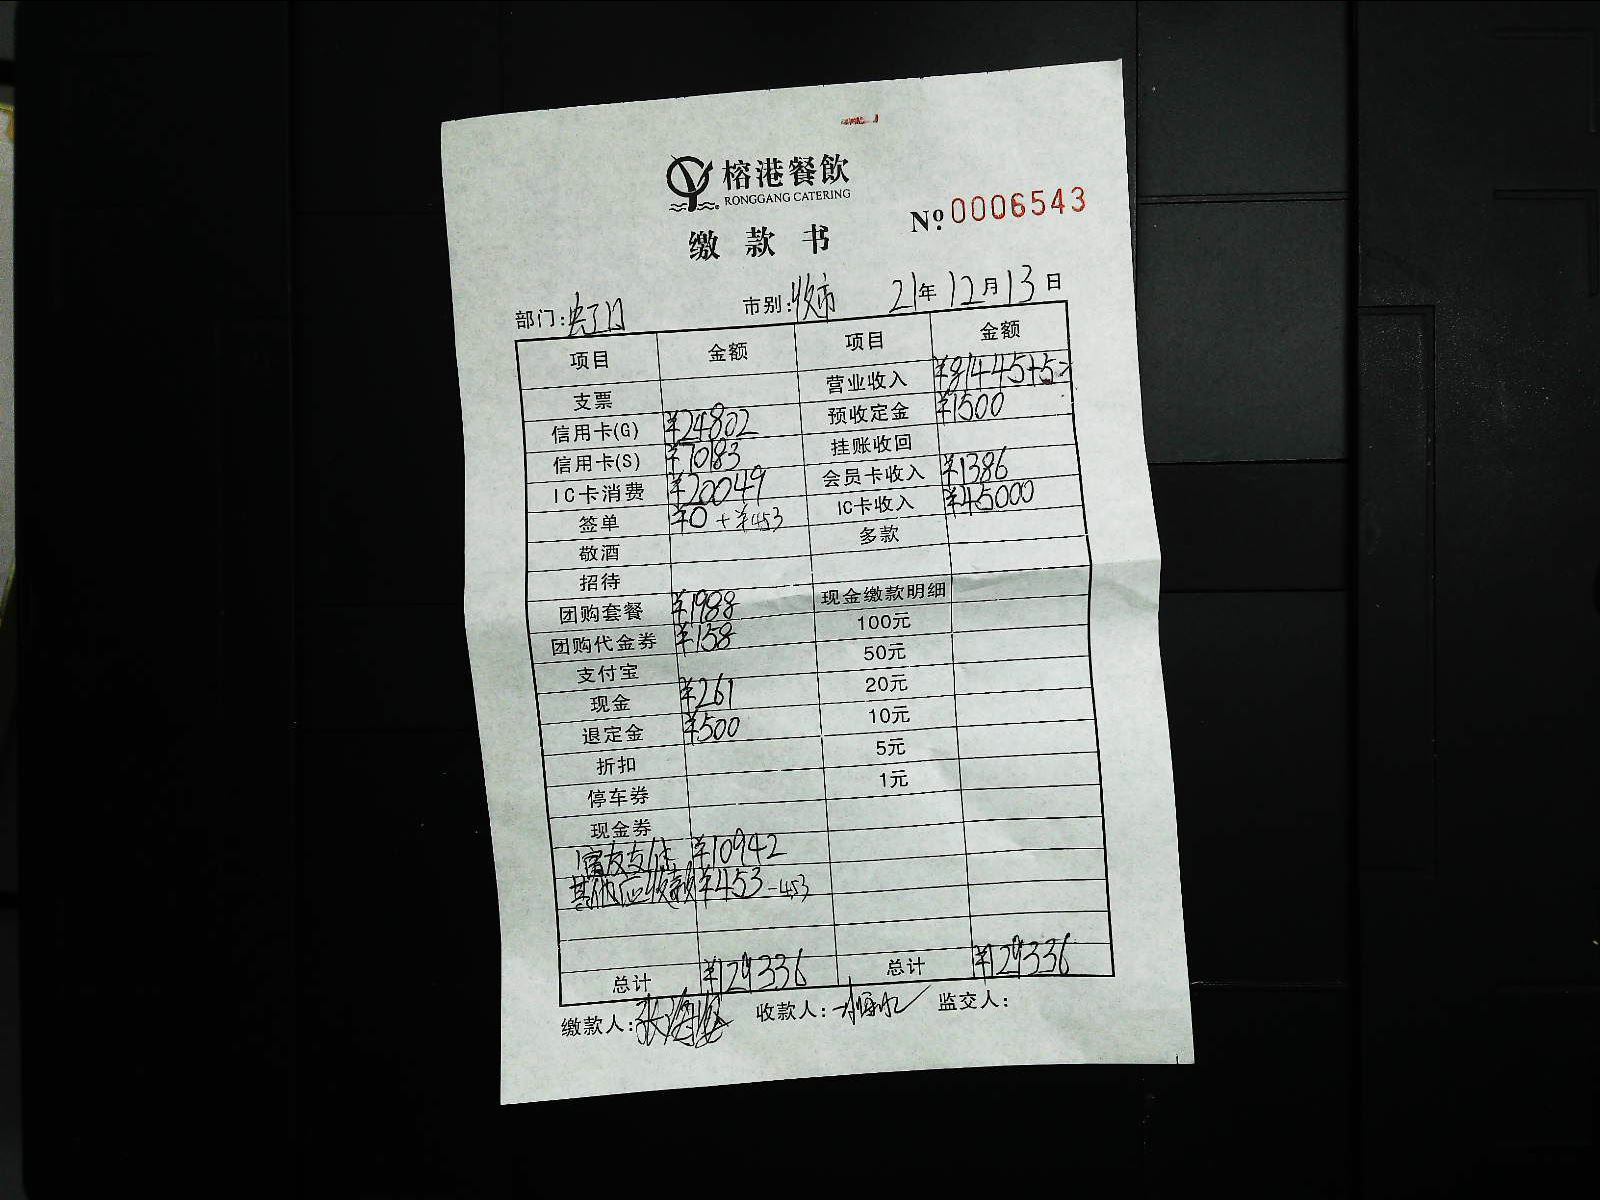 榕港餐飲
RONGGANG CATERING
No. 0006543
缴款书
部门: 市别:收市 21年12月13日
项目 金额 项目 金额
支票 营业收入 ¥81445+5=
信用卡(G) ¥24802 预收定金 ¥1500
信用卡(S) ¥70183 挂账收回
IC卡消费 ¥20049 会员卡收入 ¥1386
签单 ¥0+¥453 IC卡收入 ¥45000
敬酒 多款
招待
团购套餐 ¥1988 现金缴款明细
团购代金券 ¥158 100元
支付宝 50元
现金 ¥261 20元
退定金 ¥500 10元
折扣 5元
停车券 1元
现金券
¥10942
其他应收款 ¥453-453
总计 ¥129336 总计 ¥129336
缴款人: 收款人: 监交人: